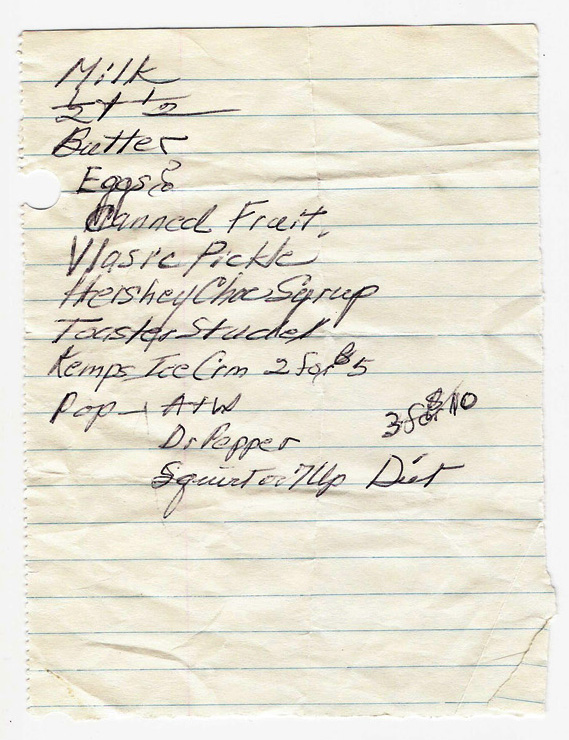 Milk
1/2 + 1/2
Butter
Eggs?
Canned Fruit.
Vlasic Pickle
Hershey Choc Syrup
Toaster Studel
Kemps Ice Crm 2 for $5
Pop - A+W
3 for $10
Dr Pepper
Squirt or 7Up Diet